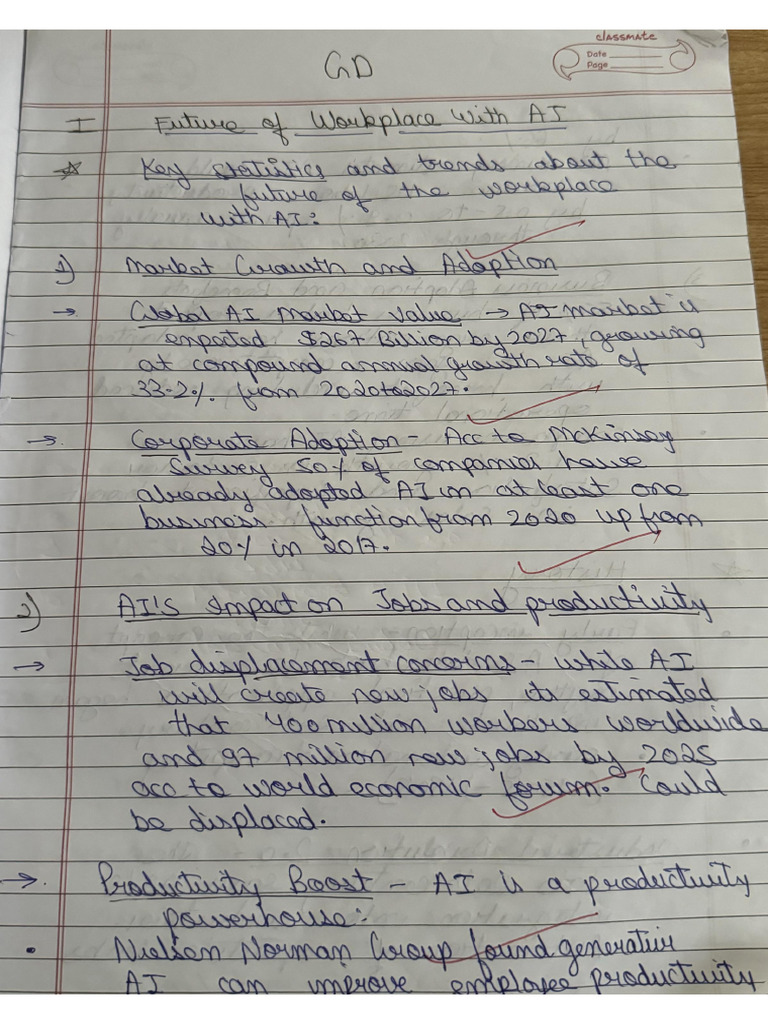 classmate
Date
Page
GD
I Future of Workplace With AI
* Key statistics and trends about the
future of the workplace
with AI:
1) Market Growth and Adoption
→ Global AI Market Value → AI market is
expected $267 Billion by 2027, growing
at compound annual growth rate of
33.2% from 2020 to 2027.
→ Corporate Adoption - Acc to McKinsey
Survey 50% of companies have
already adopted AI in at least one
business function from 2020 up from
20% in 2017.
2) AI's Impact on Jobs and productivity
→ Job displacement concerns - while AI
will create new jobs its estimated
that 400 million workers worldwide
and 97 million new jobs by 2025
acc to world economic forum. Could
be displaced.
→ Productivity Boost - AI is a productivity
powerhouse:
• Nielsen Norman Group found generative
AI can improve employee productivity